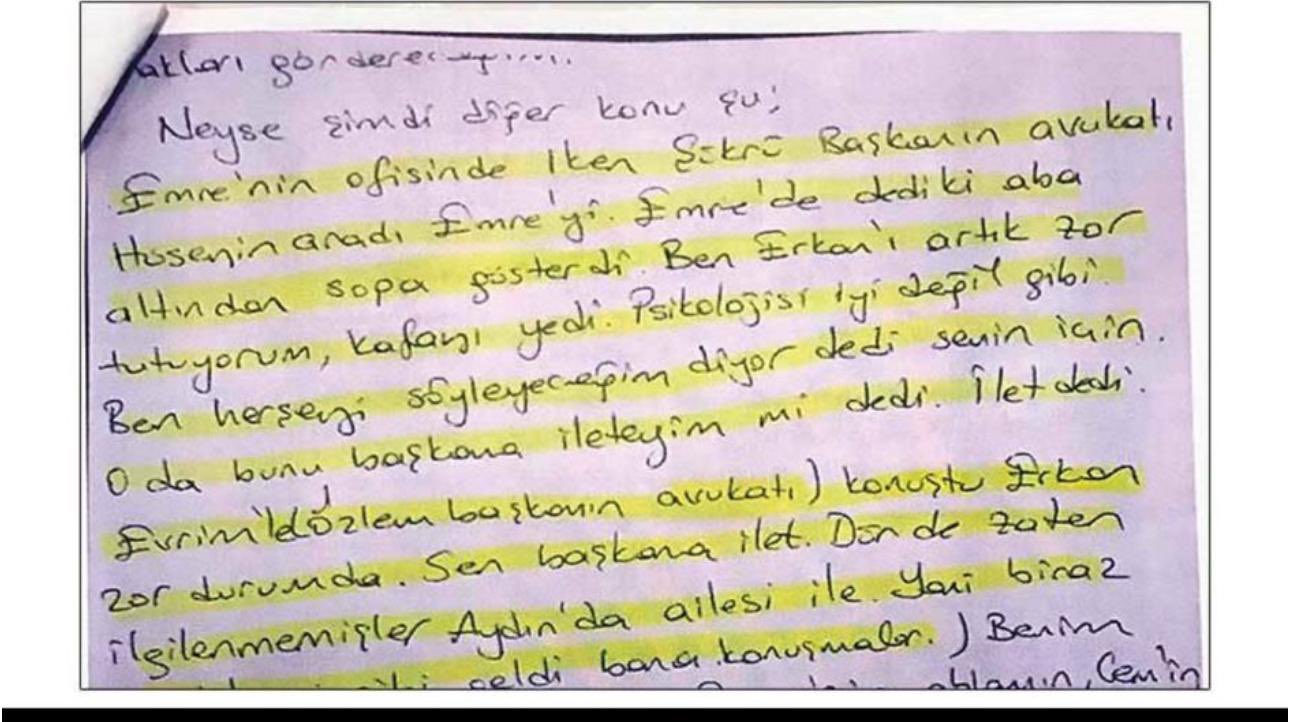 göndereceğim....
Neyse şimdi diğer konu şu;
Emre'nin ofisinde iken Şükrü Başkanın avukatı
Hüseyin aradı Emre'yi. Emre'de dedi ki aba
altından sopa gösterdi. Ben Erkan'ı artık zor
tutuyorum, kafayı yedi. Psikolojisi iyi değil gibi.
Ben herşeyi söyleyeceğim diyor dedi senin için.
O da bunu başkana ileteyim mi dedi. İlet dedi.
Evrim'le Özlem başkanın avukatı) konuştu Erkan
zor durumda. Sen başkana ilet. Dün de zaten
ilgilenmemişler Aydın'da ailesi ile. Yani biraz
geldi bana konuşmalar.) Benim
ablamın, Cem'in